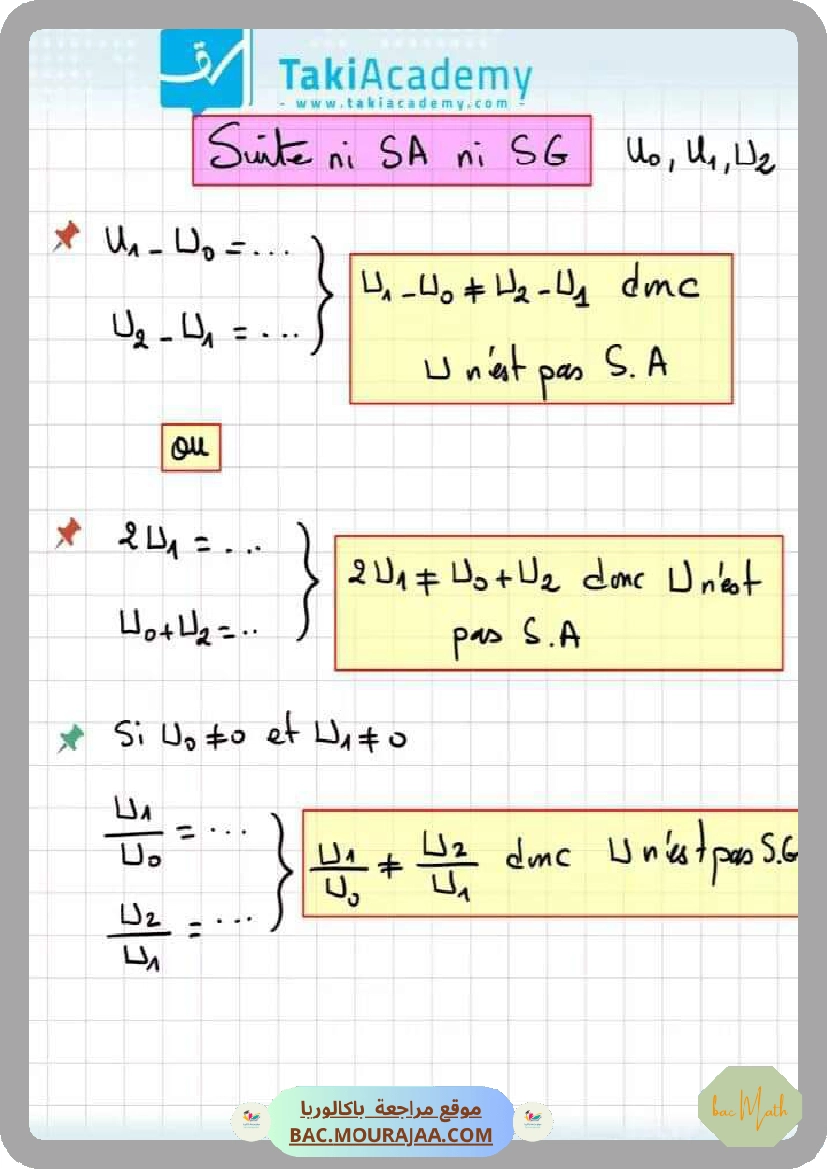 TakiAcademy
- www.takiacademy.com -
Suite ni SA ni SG U₀, U₁, U₂
U₁ - U₀ = ...
U₂ - U₁ = ...
U₁ - U₀ ≠ U₂ - U₁ donc
U n'est pas S.A
ou
2U₁ = ...
U₀ + U₂ = ..
2U₁ ≠ U₀ + U₂ donc U n'est
pas S.A
Si U₀ ≠ 0 et U₁ ≠ 0
U₁/U₀ = ...
U₂/U₁ = ...
U₁/U₀ ≠ U₂/U₁ donc U n'est pas S.G
موقع مراجعة باكالوريا
BAC.MOURAJAA.COM
bac Math